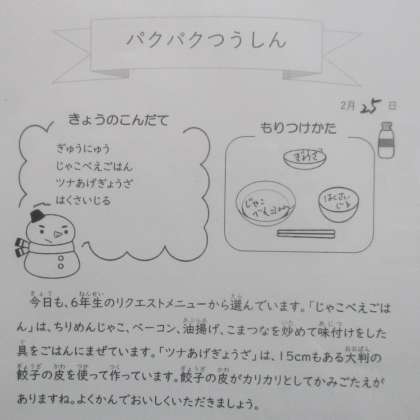 パクパクつうしん
2月25日
きょうのこんだて
ぎゅうにゅう
じゃこべえごはん
ツナあげぎょうざ
はくさいじる
もりつけかた
ぎょうざ
じゃこ
べえごはん
はくさい
じる
今日も、6年生のリクエストメニューから選んでいます。「じゃこべえごは
ん」は、ちりめんじゃこ、ベーコン、油揚げ、こまつなを炒めて味付けをした
具をごはんにまぜています。「ツナあげぎょうざ」は、15cmもある大判の
餃子の皮を使って作っています。餃子の皮がカリカリとしてかみごたえが
ありますね。よくかんでおいしくいただきましょう。